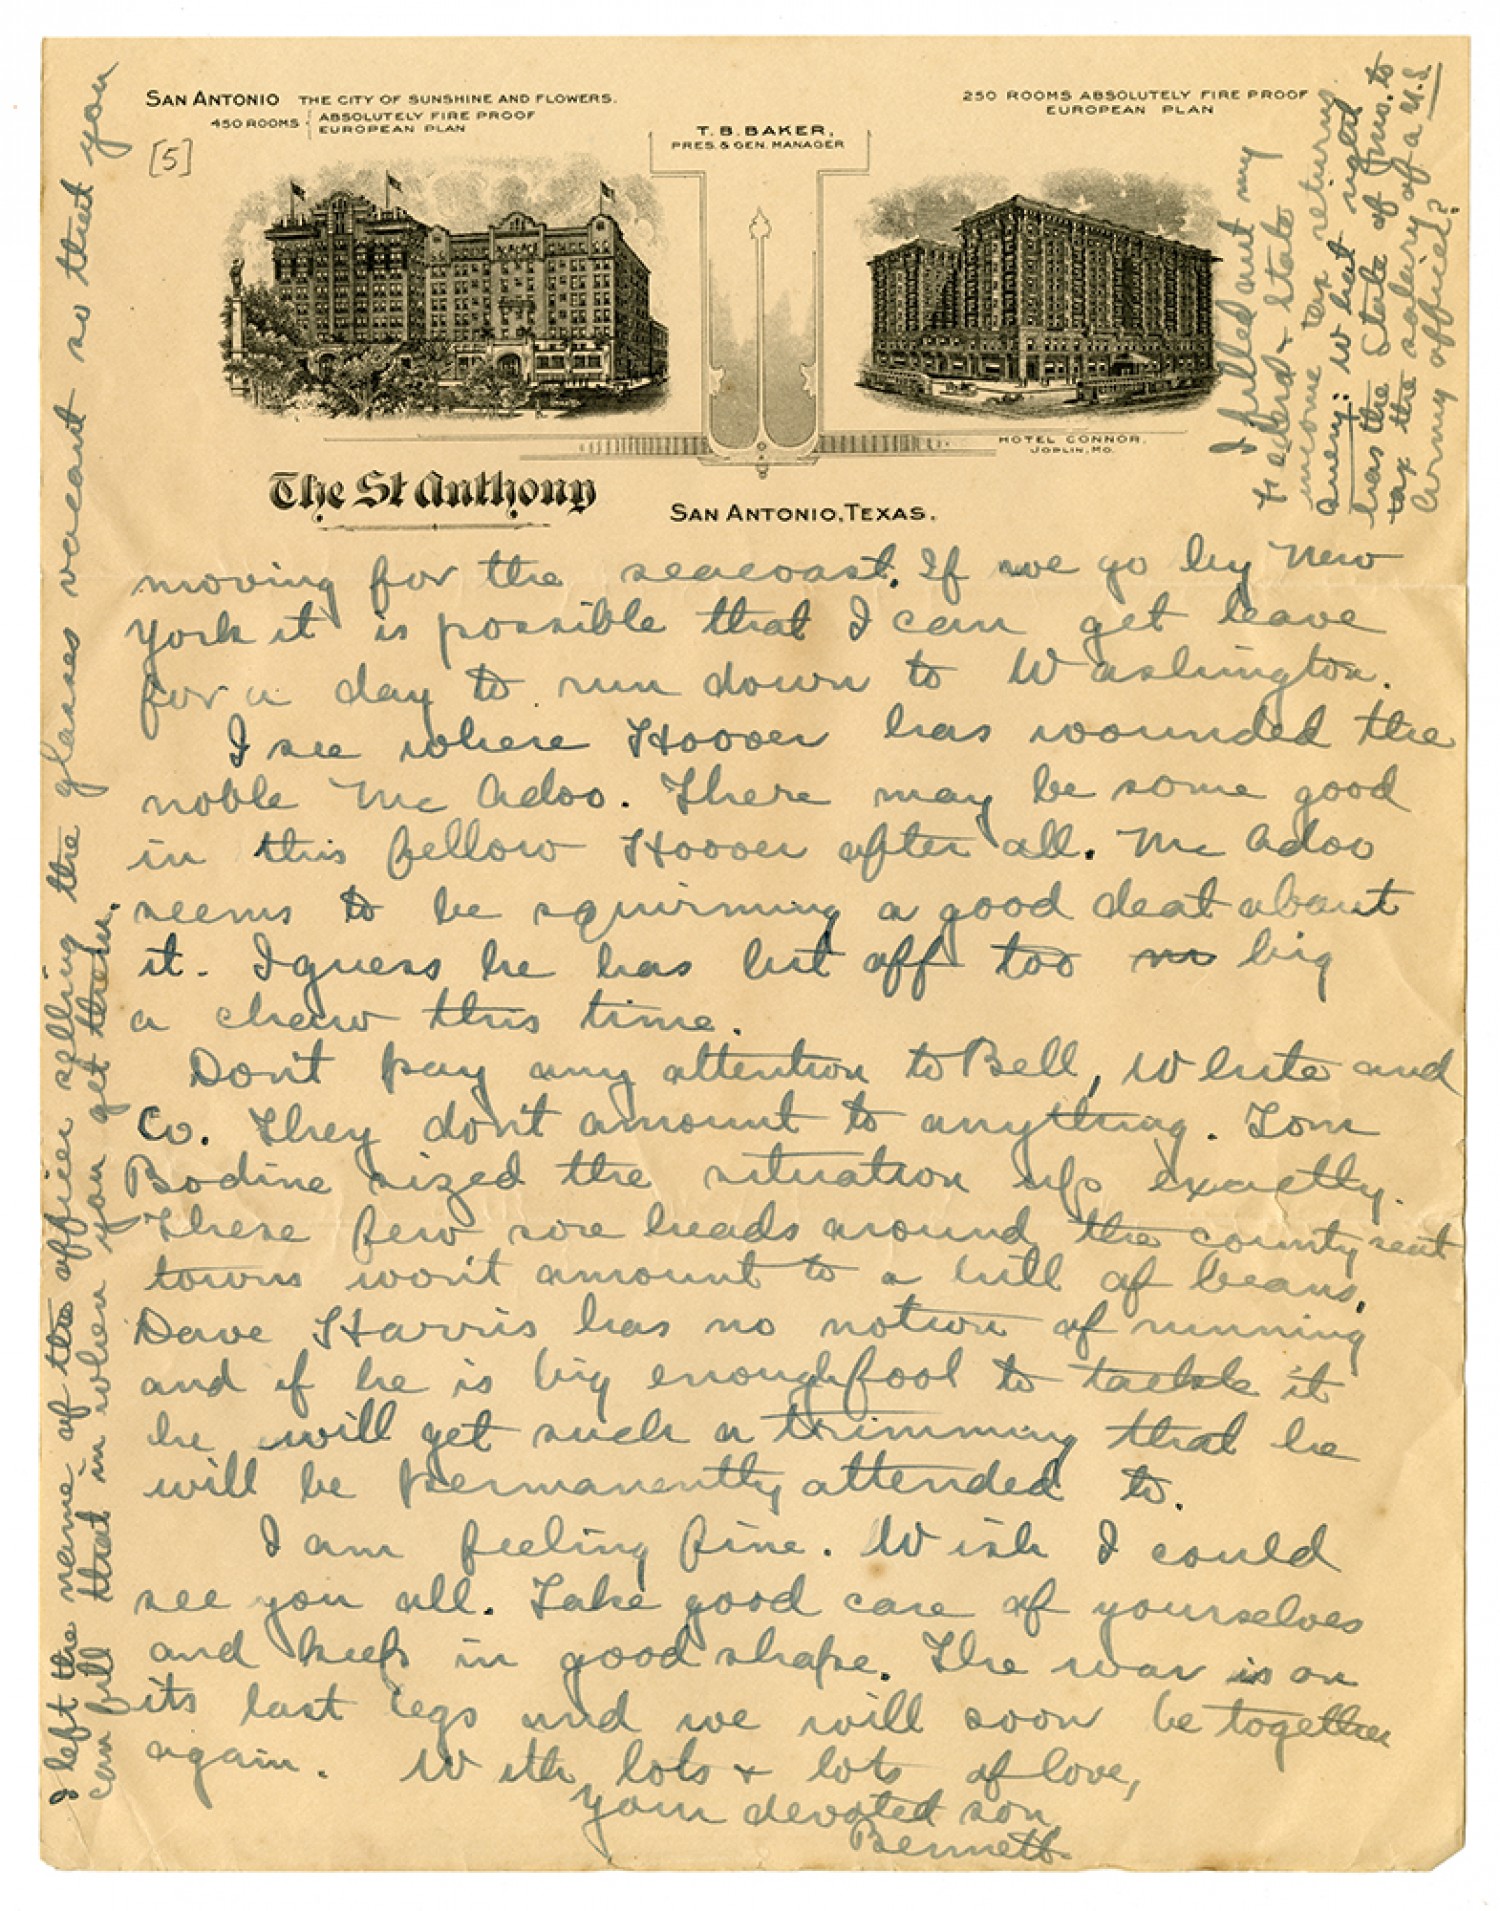 SAN ANTONIO THE CITY OF SUNSHINE AND FLOWERS.
450 ROOMS { ABSOLUTELY FIRE PROOF
EUROPEAN PLAN
[5]
T. B. BAKER,
PRES. & GEN. MANAGER
250 ROOMS ABSOLUTELY FIRE PROOF
EUROPEAN PLAN
HOTEL CONNOR,
JOPLIN, MO.
The St Anthony
SAN ANTONIO, TEXAS.
moving for the seacoast. If we go by New
York it is possible that I can get leave
for a day to run down to Washington.
I see where Hoover has wounded the
noble Mc Adoo. There may be some good
in this fellow Hoover after all. Mc Adoo
seems to be squirming a good deal about
it. I guess he has bit off too big
a chaw this time.
Don't pay any attention to Bell, White and
Co. They don't amount to anything. Tom
Bodine sized the situation up exactly.
These few sore heads around the county seat
towns won't amount to a hill of beans.
Dave Harris has no notion of running
and if he is big enough fool to tackle it
he will get such a trimming that he
will be permanently attended to.
I am feeling fine. Wish I could
see you all. Take good care of yourselves
and keep in good shape. The war is on
its last legs and we will soon be together
again. With lots & lots of love,
Your devoted son
Bennett
I left the name of the officer selling the glasses vacant so that you
can fill that in when you get them.
I filled out my
Federal & State
income tax returns.
Query: What right
has the State of Mo. to
tax the salary of a U.S.
Army officer?